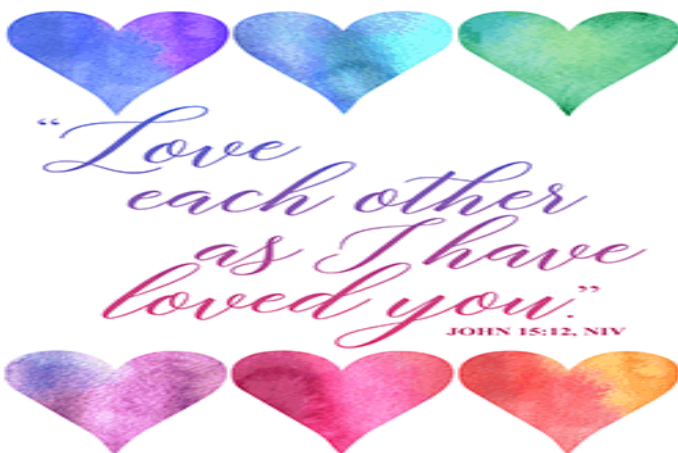 “Love
each other
as I have
loved you.”
JOHN 15:12, NIV